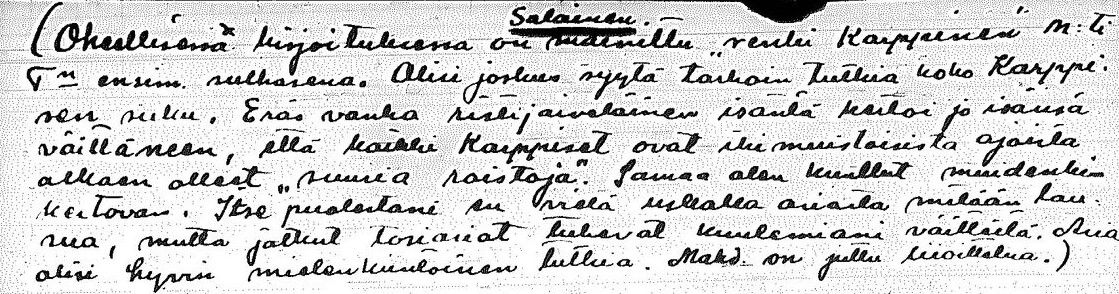 Salainen.—
(Oheellisessa kirjoituksessa on mainittu "renki Karppinen" N:ti
T:n ensim. sulhasena. Olisi joskus syytä tarkoin tutkia koko Karppi-
sen suku. Eräs vanha ristijärveläinen isäntä kertoi jo isänsä
väittäneen, että kaikki Karppiset ovat ikimuistoisista ajoista
alkaen olleet "suuria roistoja". Samaa olen kuullut muidenkin
kertovan. Itse puolestani en vielä uskalla asiasta mitään lau-
sua, mutta jotkut tosiasiat tukevat kuulemiani väitteitä. Asia
olisi hyvin mielenkiintoinen tutkia. Mahd. on juttu liioittelua.)